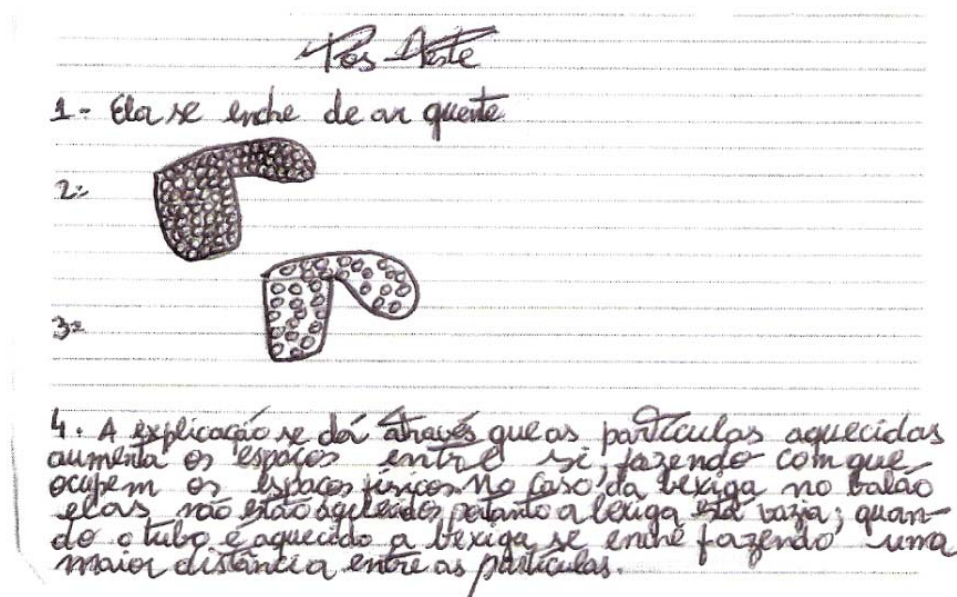 Pós Teste
1- Ela se enche de ar quente
2-
3-
4. A explicação se dá através que as partículas aquecidas
aumenta os espaços entre si, fazendo com que
ocupem os espaços físicos. No caso, da bexiga no balão
elas não estão aquecidas portanto a bexiga está vazia; quan-
do o tubo é aquecido a bexiga se enche fazendo uma
maior distância entre as partículas.